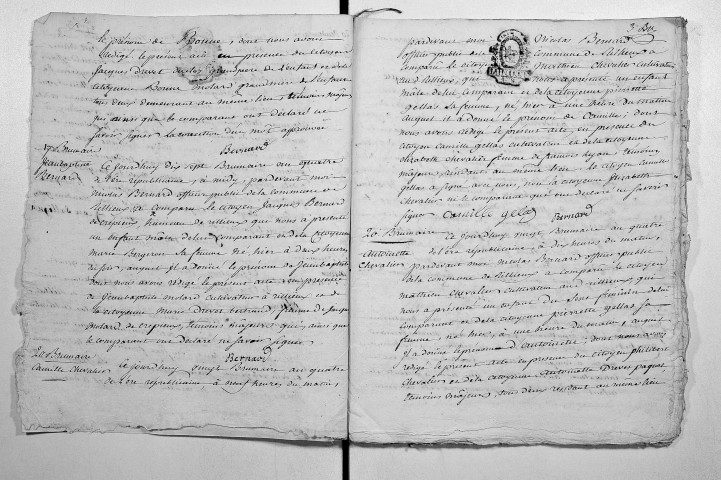 le prénom de Bonne, dont nous avons
rédigé le présent acte en présence du citoyen
Jacques Drevet ayeul grandpere de l'enfant et de la
citoyenne Bonne Molard grandmere de l'enfant
tous deux demeurant au même lieu, témoins majeurs
qui ainsi que le comparant ont déclaré ne
savoir signer
Bernard
17 Brumaire
Jeanbaptiste
Bernard
Ce jourdhuy dix sept Brumaire an quatre
de l'ère républicaine à midy, pardevant moi
nicolas Bernard officier public de la commune de
Rillieux est comparu le citoyen Jacques Bernard
de Crepieux hameau de rillieux qui nous a présenté
un enfant mâle de lui comparant et de la citoyenne
Marie Bergeron sa femme né hier à deux heures
du soir, auquel il a donné le prénom de Jeanbaptiste
dont nous avons rédigé le présent acte en présence
de Jeanbaptiste molard cultivateur à rillieux et de
la citoyenne Marie Drevet femme de Joseph
molard de crepieux, témoins majeurs qui, ainsi que
le comparant ont déclaré ne savoir signer
Bernard
20 Brumaire
Camille Chevalier
Ce jourdhuy vingt Brumaire an quatre
de l'ère républicaine à neuf heures du matin,
pardevant moi Nicolas Bernard
officier public de la commune de Rillieux a
comparu le citoyen Mathieu Chevalier cultivateur
aud. Rillieux, qui nous a présenté un enfant
mâle de lui comparant et de la citoyenne pierrette
gellas sa femme, né hier à une heure du matin
auquel il a donné le prénom de Camille; dont
nous avons rédigé le présent acte, en présence du
citoyen Camille gellas cultivateur et de la citoyenne
Elizabeth chevalier femme de témoins
majeurs, résidant au même lieu le citoyen Camille
gellas a signé avec nous, non la citoyenne Elizabeth
Chevalier ni le comparant qui ont déclaré ne savoir
signer Camille gella Bernard
20 Brumaire
Antoinette
Chevalier
Ce jourdhuy vingt Brumaire an quatre
de l'ère républicaine, à dix heures du matin,
pardevant moi nicolas Bernard officier public
de la commune de Rillieux a comparu le citoyen
mathieu Chevalier cultivateur aud. rillieux, qui
nous a présenté un enfant du sexe féminin de lui
comparant et de la citoyenne pierrette gellas sa
femme, née hier, à une heure du matin, auquel
il a donné le prénom d'Antoinette; dont nous avons
rédigé le présent acte en présence du citoyen philibert
Chevalier et de la citoyenne Antoinette Drevet
témoins majeurs, tous deux résidant au même lieu